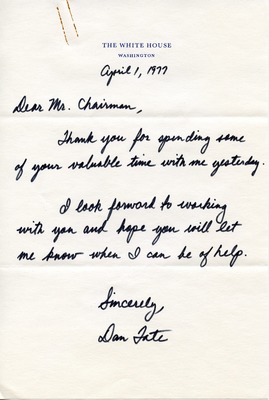 THE WHITE HOUSE
WASHINGTON
April 1, 1977
Dear Mr. Chairman,
Thank you for spending some
of your valuable time with me yesterday.
I look forward to working
with you and hope you will let
me know when I can be of help.
Sincerely,
Dan Tate